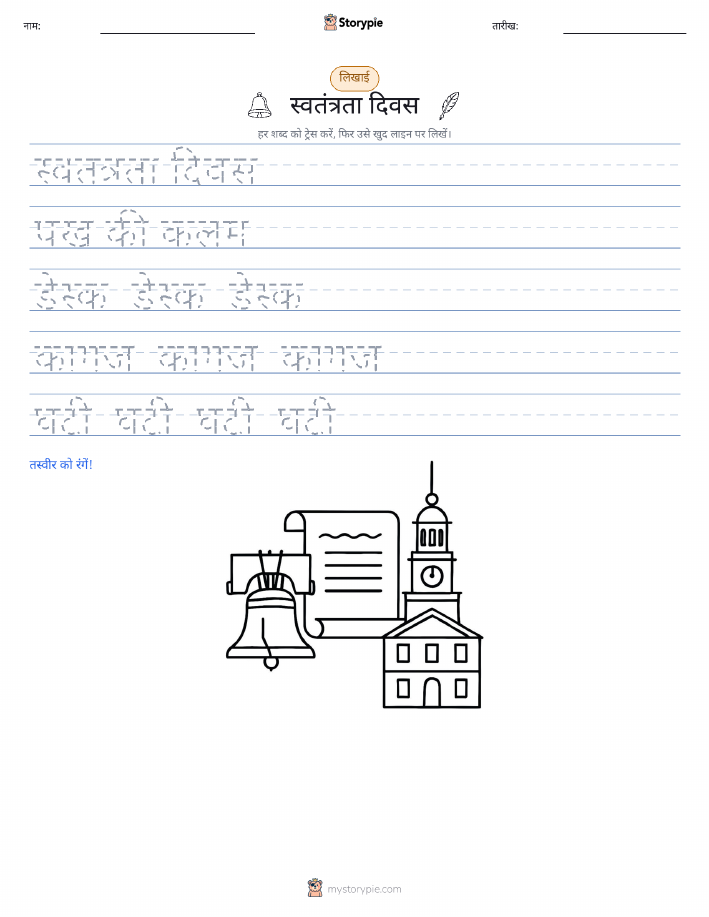 नाम:
Storypie
तारीख:
लिखाई
स्वतंत्रता दिवस
हर शब्द को ट्रेस करें, फिर उसे खुद लाइन पर लिखें।
स्वतंत्रता दिवस
पंख की कलम
डेस्क डेस्क डेस्क
कागज कागज कागज
घंटी घंटी घंटी घंटी
तस्वीर को रंगें!
mystorypie.com